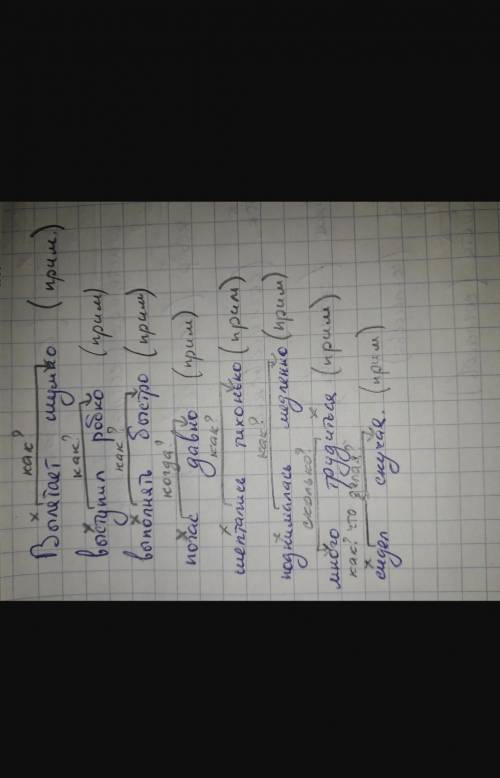 как?
х
Вылетает шумно (прим.)
как?
х
выступил робко (прим)
как?
х
выполнять быстро (прим)
когда?
х
погас давно (прим)
как?
х
шептались тихонько (прим)
как?
х
поднималась медленно (прим)
сколько?
х
много трудиться (прим)
как? что делая?
х
сидел скучая. (прим)